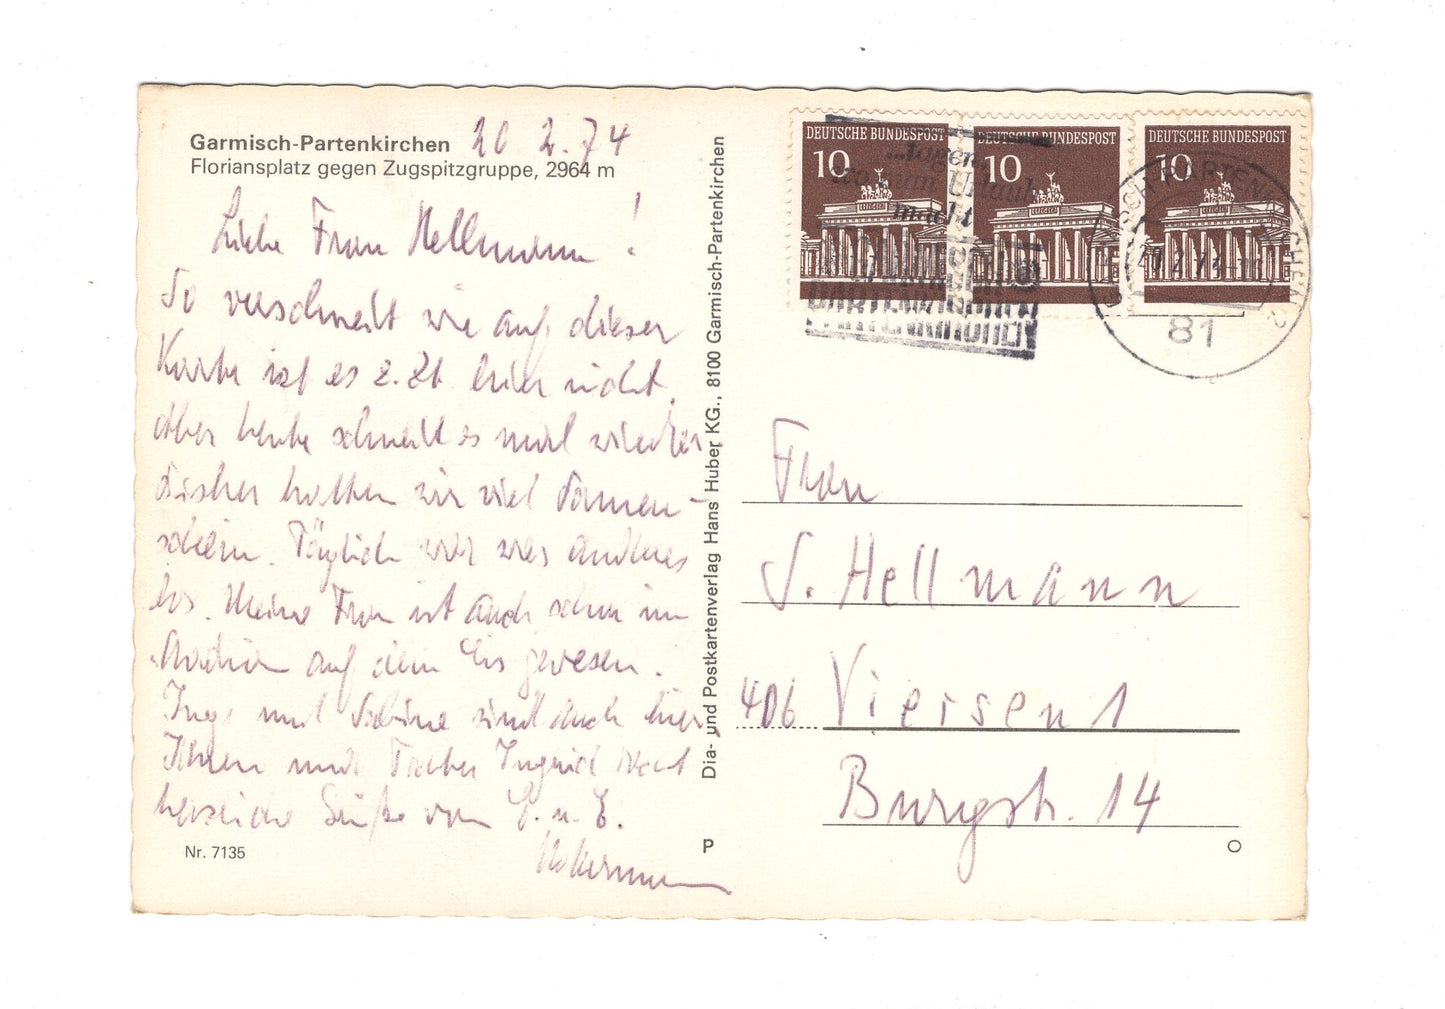 Garmisch-Partenkirchen 20 2. 74
Floriansplatz gegen Zugspitzgruppe, 2964 m
Liebe Frau Hellmann!
So verschneit wie auf dieser
Karte ist es z. Zt. hier nicht.
Aber heute schneit es mal wieder
Bisher hatten wir viel Sonnen-
schein. Täglich was anderes
los. Meine Frau ist auch schon im
Stadion auf dem Eis gewesen.
Inge und Sabine sind auch hier
Ihnen und Tochter Ingrid recht
herzliche Grüße von E. u. E.
Nr. 7135
Dia- und Postkartenverlag Hans Huber KG., 8100 Garmisch-Partenkirchen
P
DEUTSCHE BUNDESPOST
10
DEUTSCHE BUNDESPOST
10
DEUTSCHE BUNDESPOST
10
...tagen
wo man Urlaub
macht
GARMISCH
PARTENKIRCHEN
81
Frau
S. Hellmann
406 Viersen 1
Burgstr. 14